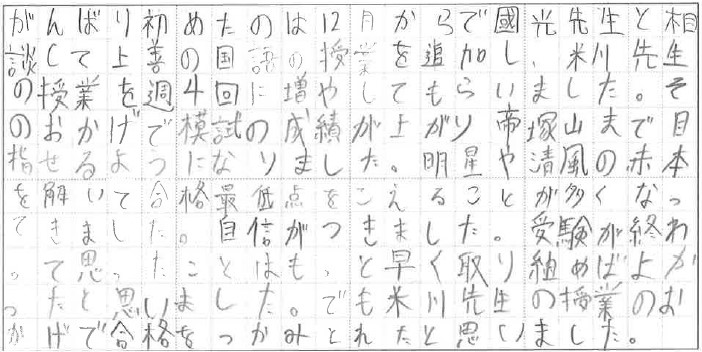 がんばり初めたのは12月からで國光先生と相
談して上善の国語の授業を追加し、米川先生
の授業を週4回に増やしてもらいました。そ
のおかげで模試の成績が上がり帝塚山まで目
指せるようになりました。明星や清風の赤本
を解いて合格最低点をこえることが多くなっ
てきました。自信がつきました。受験が終わ
って思ったことは、もっと早く取り組めばよか
ったと思いました。でも米川先生の授業のお
かげで合格をつかみとれたと思いました。